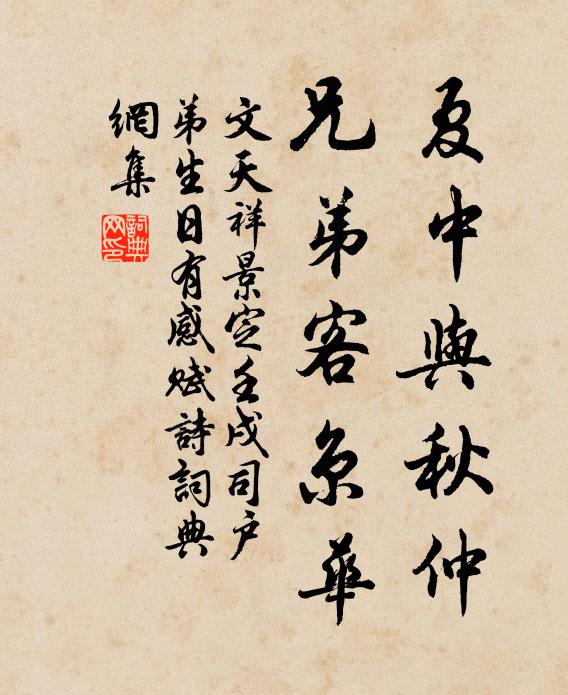 夏中與秋仲
兄弟客京華
文天祥景定壬戌司戶
弟生日有感賦詩詞典
網集
詞典網印